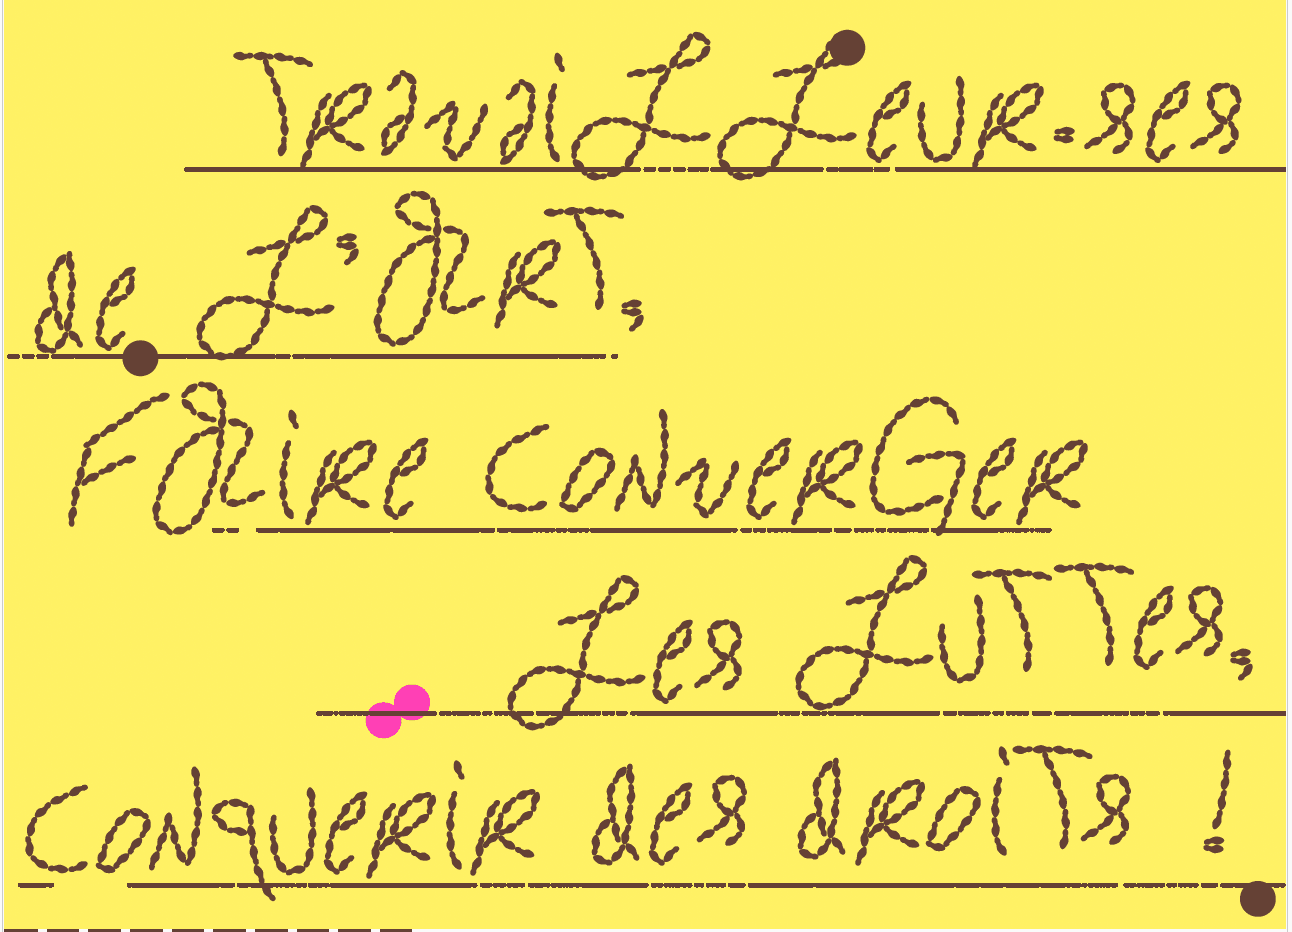 TravaiLLeur=ses
de L'arT,
Faire converGer
Les LuTTes,
conquerir des droiTs !